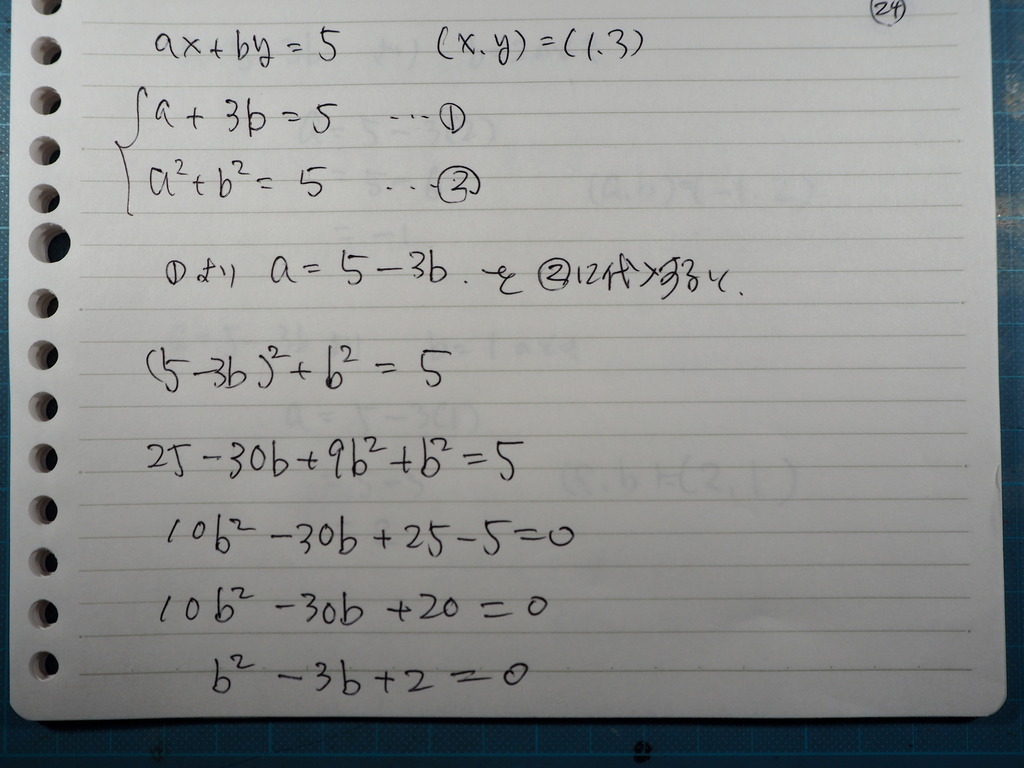 24
ax+by=5 (x.y)=(1.3)
a+3b=5 …①
a²+b²=5 …②
①より a=5-3b.を②に代入すると.
(5-3b)²+b²=5
25-30b+9b²+b²=5
10b²-30b+25-5=0
10b²-30b+20=0
b²-3b+2=0